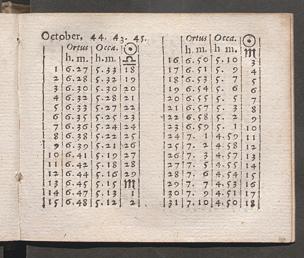 October. 44. 43. 45.
Ortus Occa. ☉
h. m. h. m. ♎
1 6.27 5.33 18
2 6.28 5.32 19
3 6.30 5.30 20
4 6.32 5.28 21
5 6.33 5.27 22
6 6.35 5.25 23
7 6.36 5.24 24
8 6.38 5.22 25
9 6.40 5.20 26
10 6.41 5.19 27
11 6.42 5.18 28
12 6.44 5.16 29
13 6.45 5.15 ♏
14 6.47 5.13 1
15 6.48 5.12 2
Ortus Occa. ☉
h. m. h. m. ♏
16 6.50 5.10 3
17 6.51 5. 9 4
18 6.53 5. 7 5
19 6.54 5. 6 6
20 6.55 5. 5 7
21 6.57 5. 3 8
22 6.58 5. 2 9
23 6.59 5. 1 10
24 7. 1 4.59 11
25 7. 2 4.58 12
26 7. 3 4.57 13
27 7. 5 4.55 14
28 7. 6 4.54 15
29 7. 7 4.53 16
30 7. 9 4.51 17
31 7.10 4.50 18